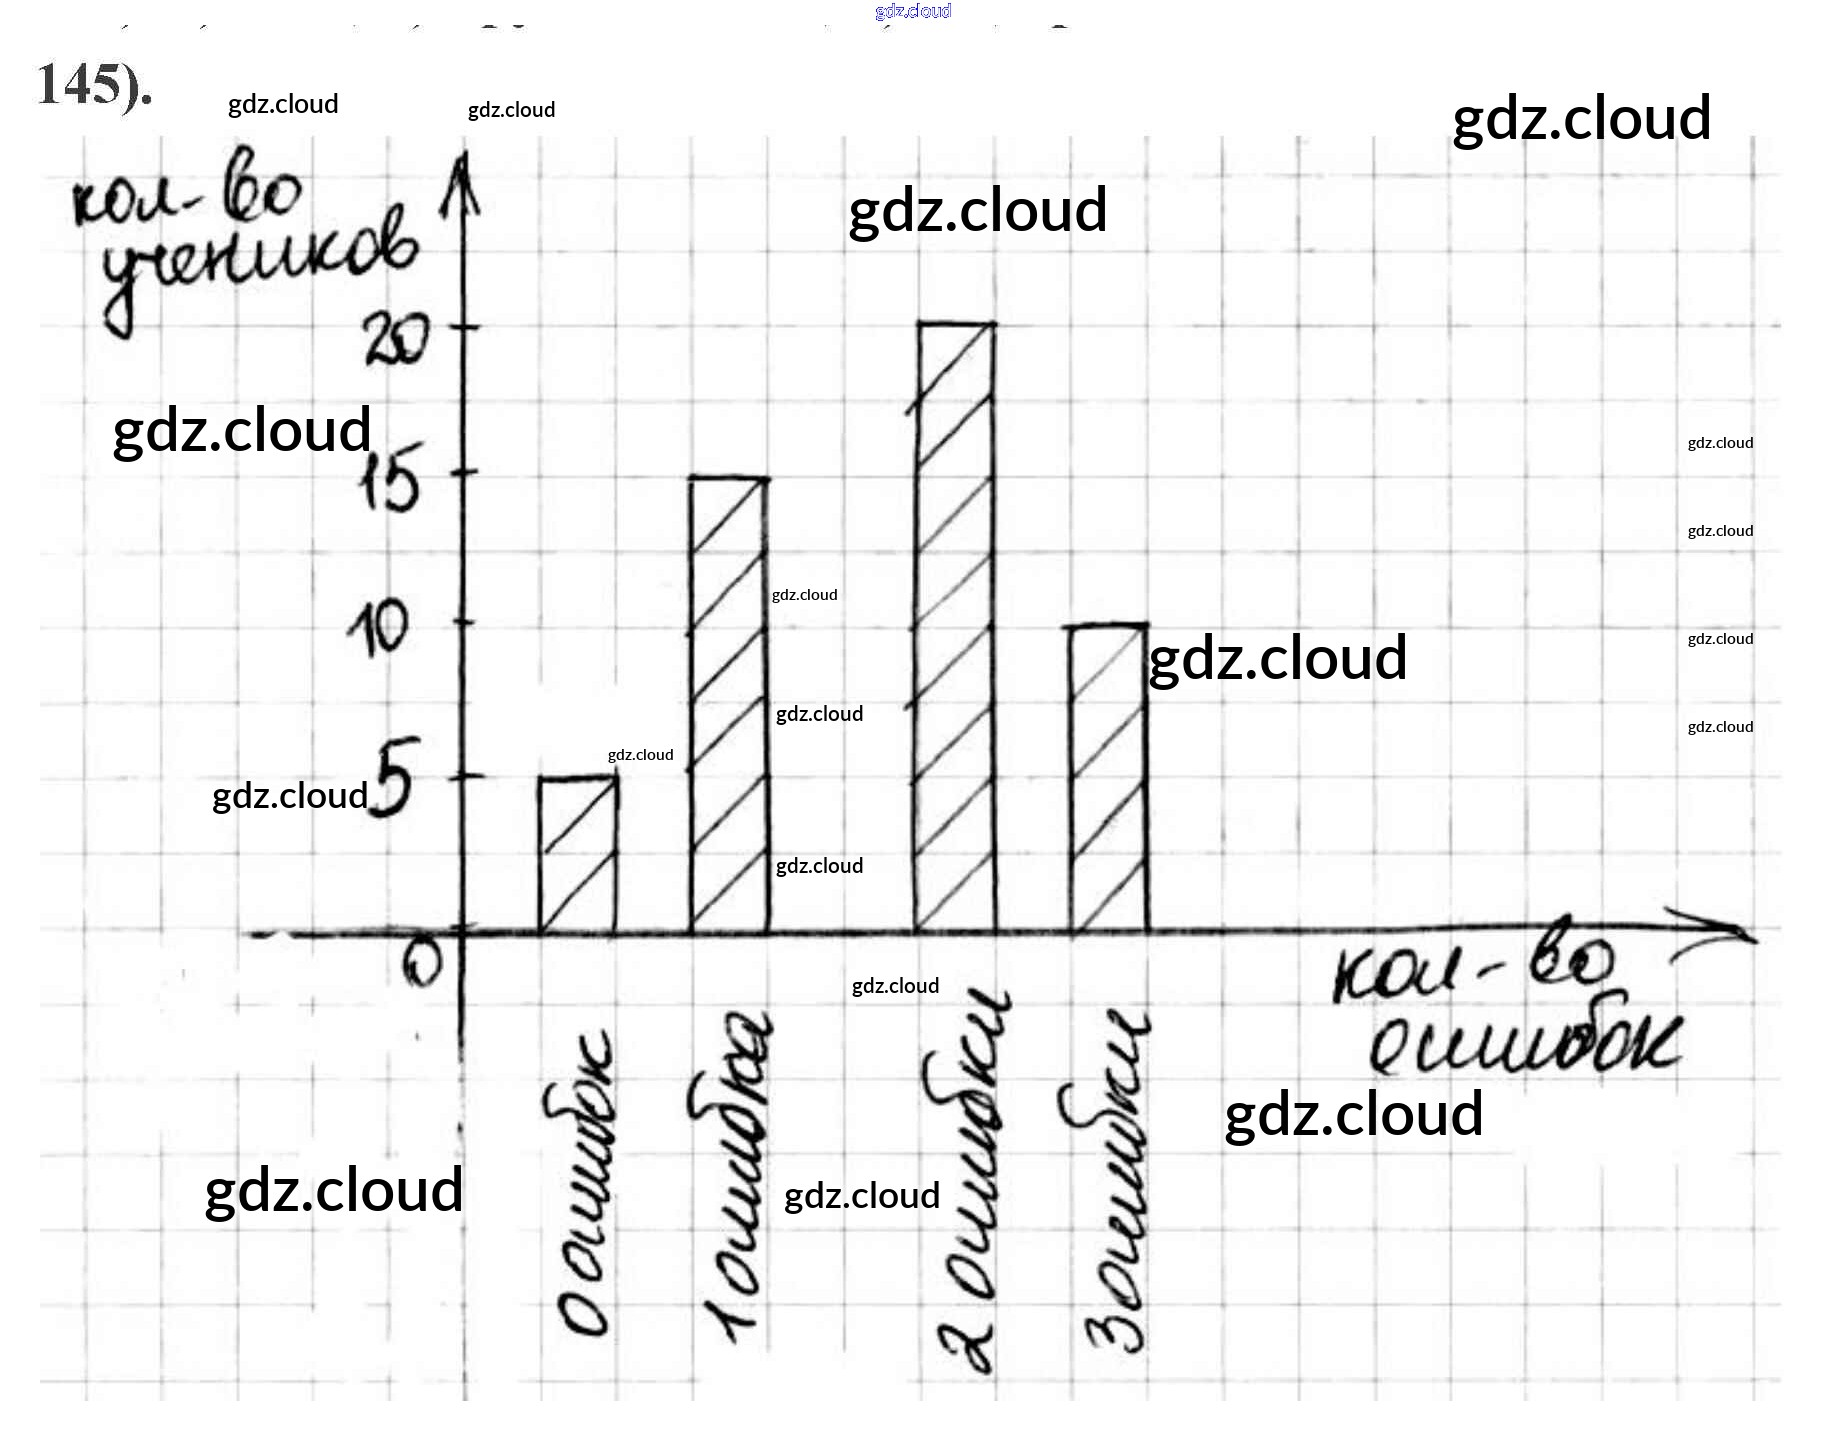 gdz.cloud
145).
gdz.cloud
gdz.cloud
gdz.cloud
кол-во
учеников
gdz.cloud
20
gdz.cloud
gdz.cloud
15
gdz.cloud
gdz.cloud
10
gdz.cloud
gdz.cloud
gdz.cloud
gdz.cloud
gdz.cloud
5
gdz.cloud
gdz.cloud
0
кол-во
ошибок
gdz.cloud
0 ошибок
1 ошибка
2 ошибки
3 ошибки
gdz.cloud
gdz.cloud
gdz.cloud